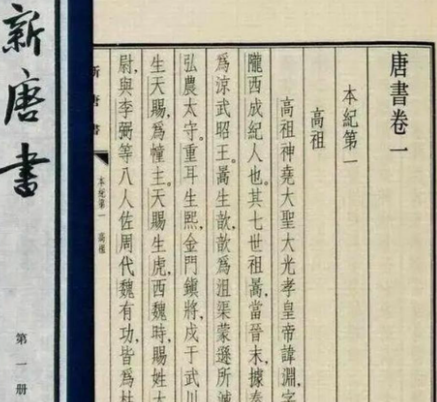 唐書卷一
本紀第一
高祖
高祖神堯大聖大光孝皇帝諱淵,字
隴西成紀人也。其七世祖暠,當晉末,據秦
爲涼武昭王。暠生歆,歆爲沮渠蒙遜所滅
弘農太守。重耳生熙,金門鎮將,戍于武川
生天賜,爲幢主。天賜生虎,西魏時,賜姓大
尉,與李弼等八人佐周代魏有功,皆爲柱
新唐書
本紀第一 高祖
新唐書
第一册